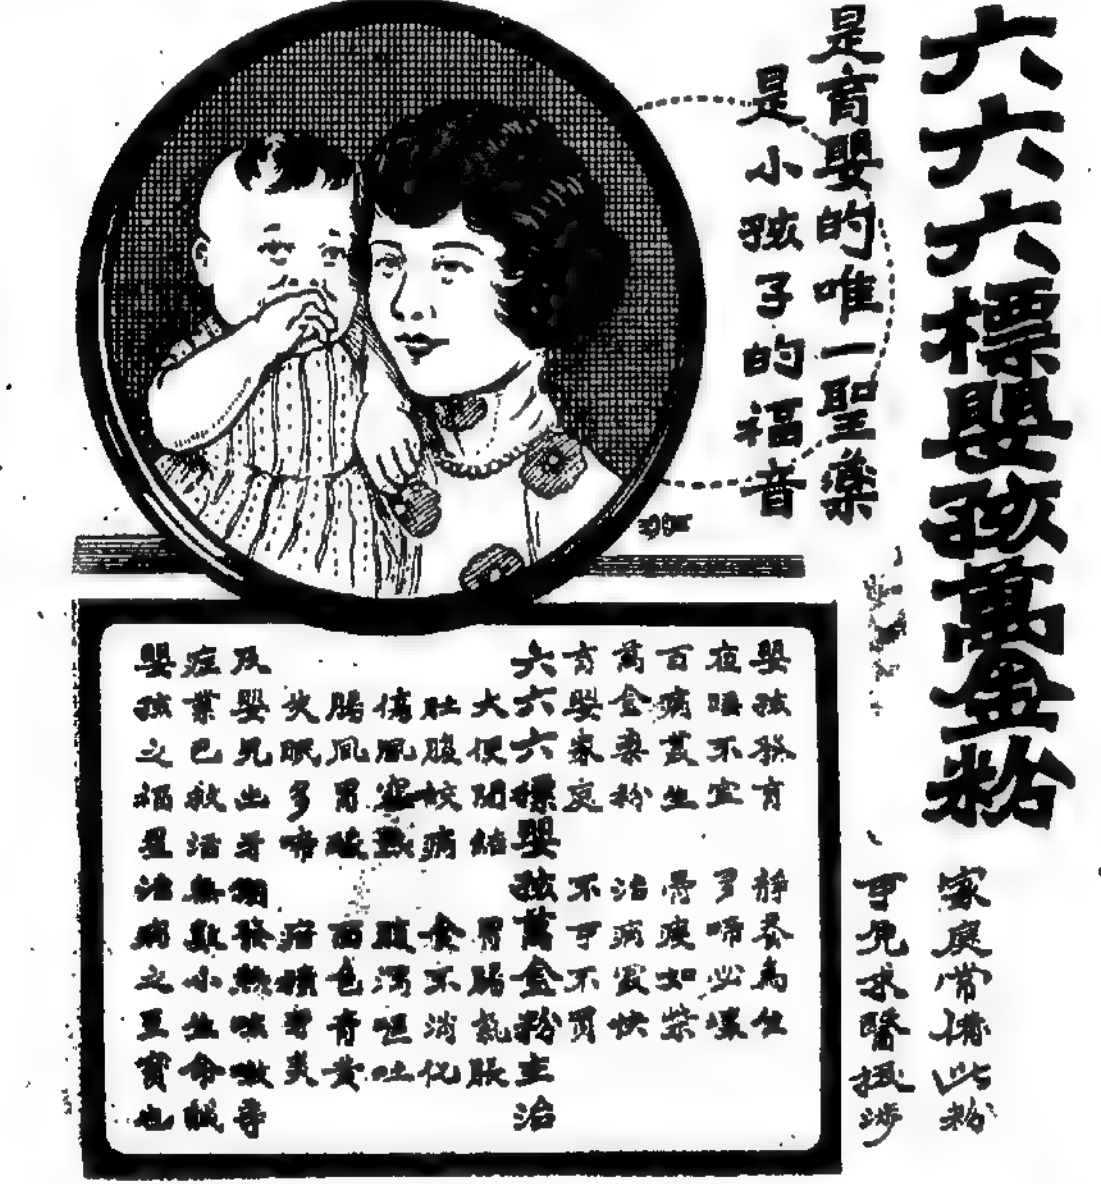 六六六標嬰孩萬金粉
是育嬰的唯一聖藥
是小孩子的福音
家庭常備此粉
可免求醫涉
嬰孩發育 靜養為佳
夜睡不宜 多啼必壞
百病叢生 骨瘦如柴
萬金粉 治病最快
育嬰家庭 不可不買
六六六標嬰孩萬金粉主治
大便閉結 胃腸氣脹
肚腹絞痛 食不消化
傷風寒熱 腹瀉嘔吐
腸風胃酸 面色青黃
失眠多啼 疳積
及嬰兒出牙潮發熱咳嗽等
症業已救活無數小生命誠
嬰孩之福星治病之至寶也